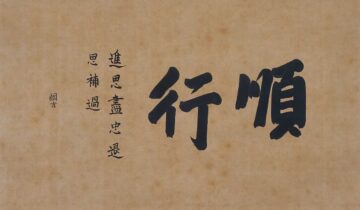 順行
進思盡忠退
思補過